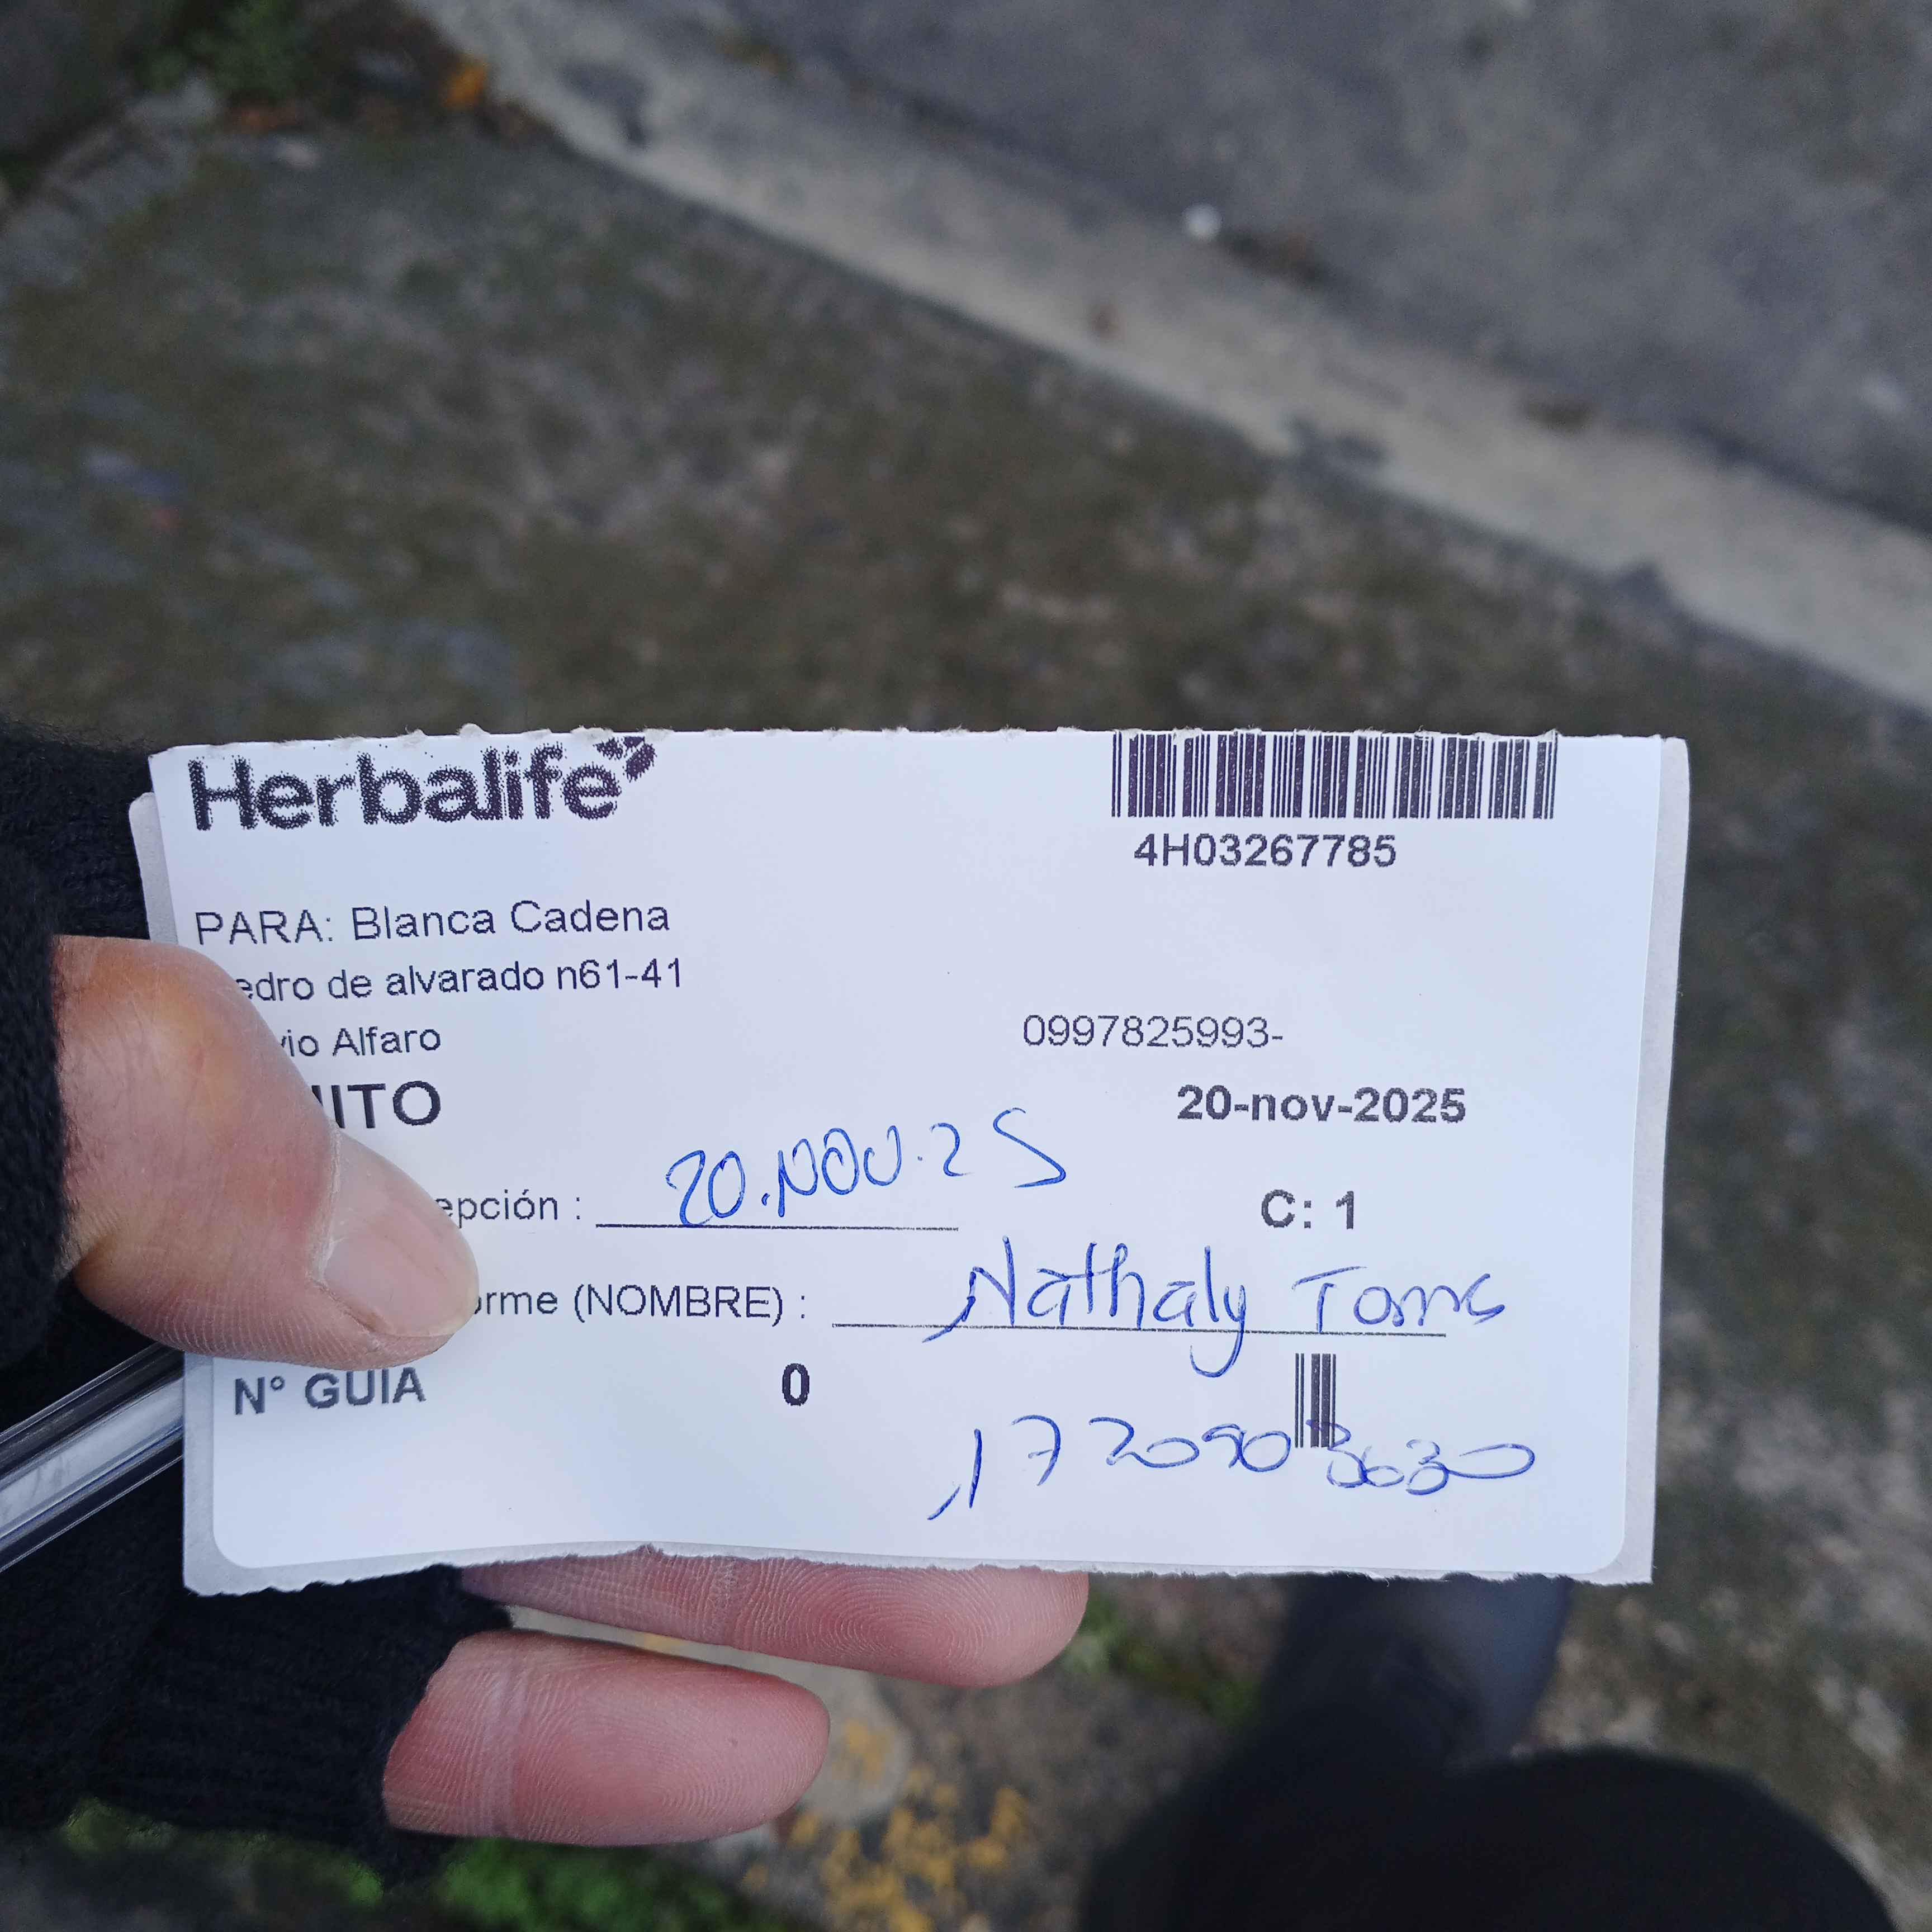 Herbalife
4H03267785
PARA: Blanca Cadena
edro de alvarado n61-41
vio Alfaro
0997825993-
UITO
20-nov-2025
epción : 20.NOV.25
C: 1
orme (NOMBRE) : Nathaly
N° GUIA 0
1720903630